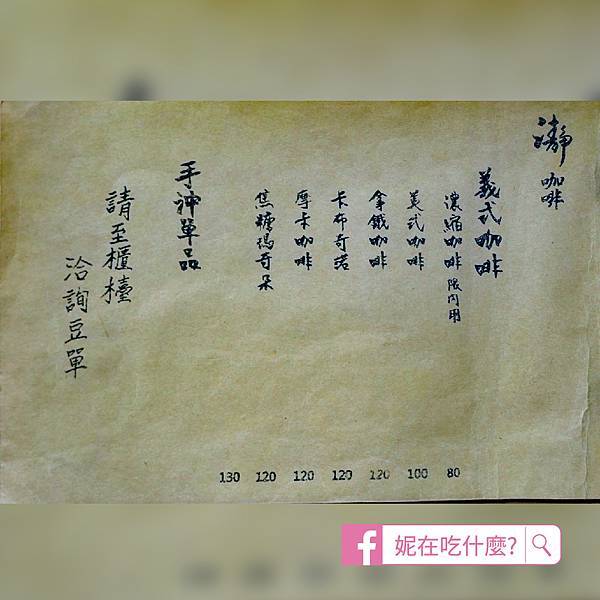 瀞咖啡
義式咖啡
濃縮咖啡 限內用 80
美式咖啡 100
拿鐵咖啡 120
卡布奇諾 120
摩卡咖啡 120
焦糖瑪奇朵 120
130
手沖單品
請至櫃檯
洽詢豆單
妮在吃什麼?